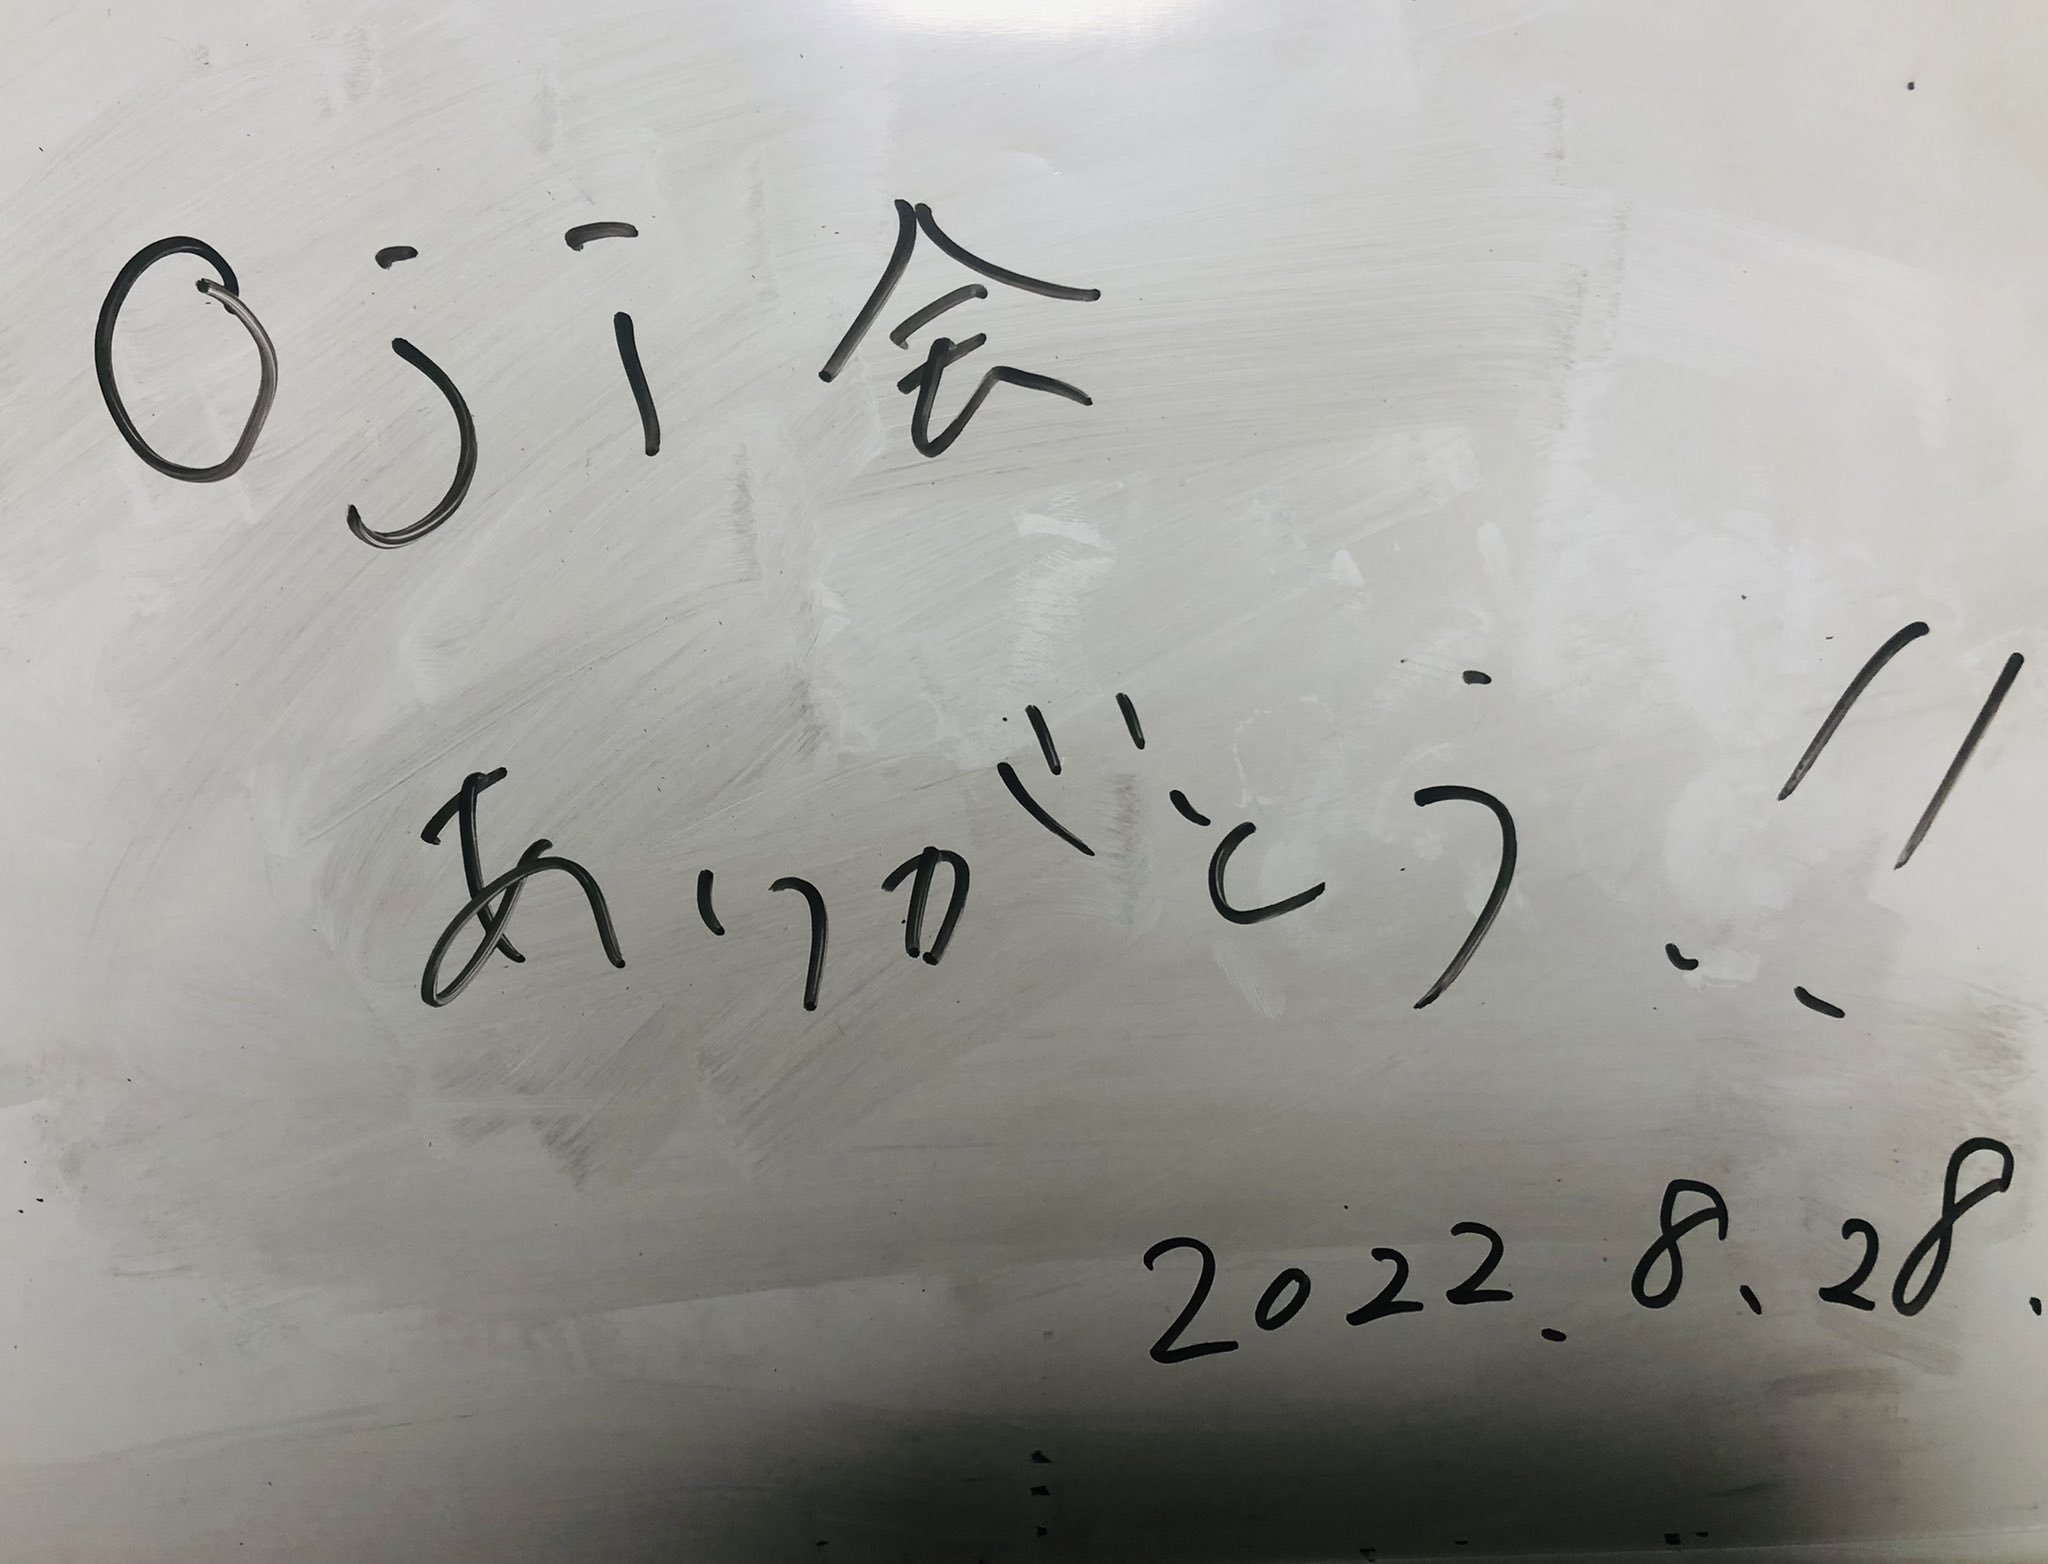 Oji会
ありがとう!!
2022.8.28.